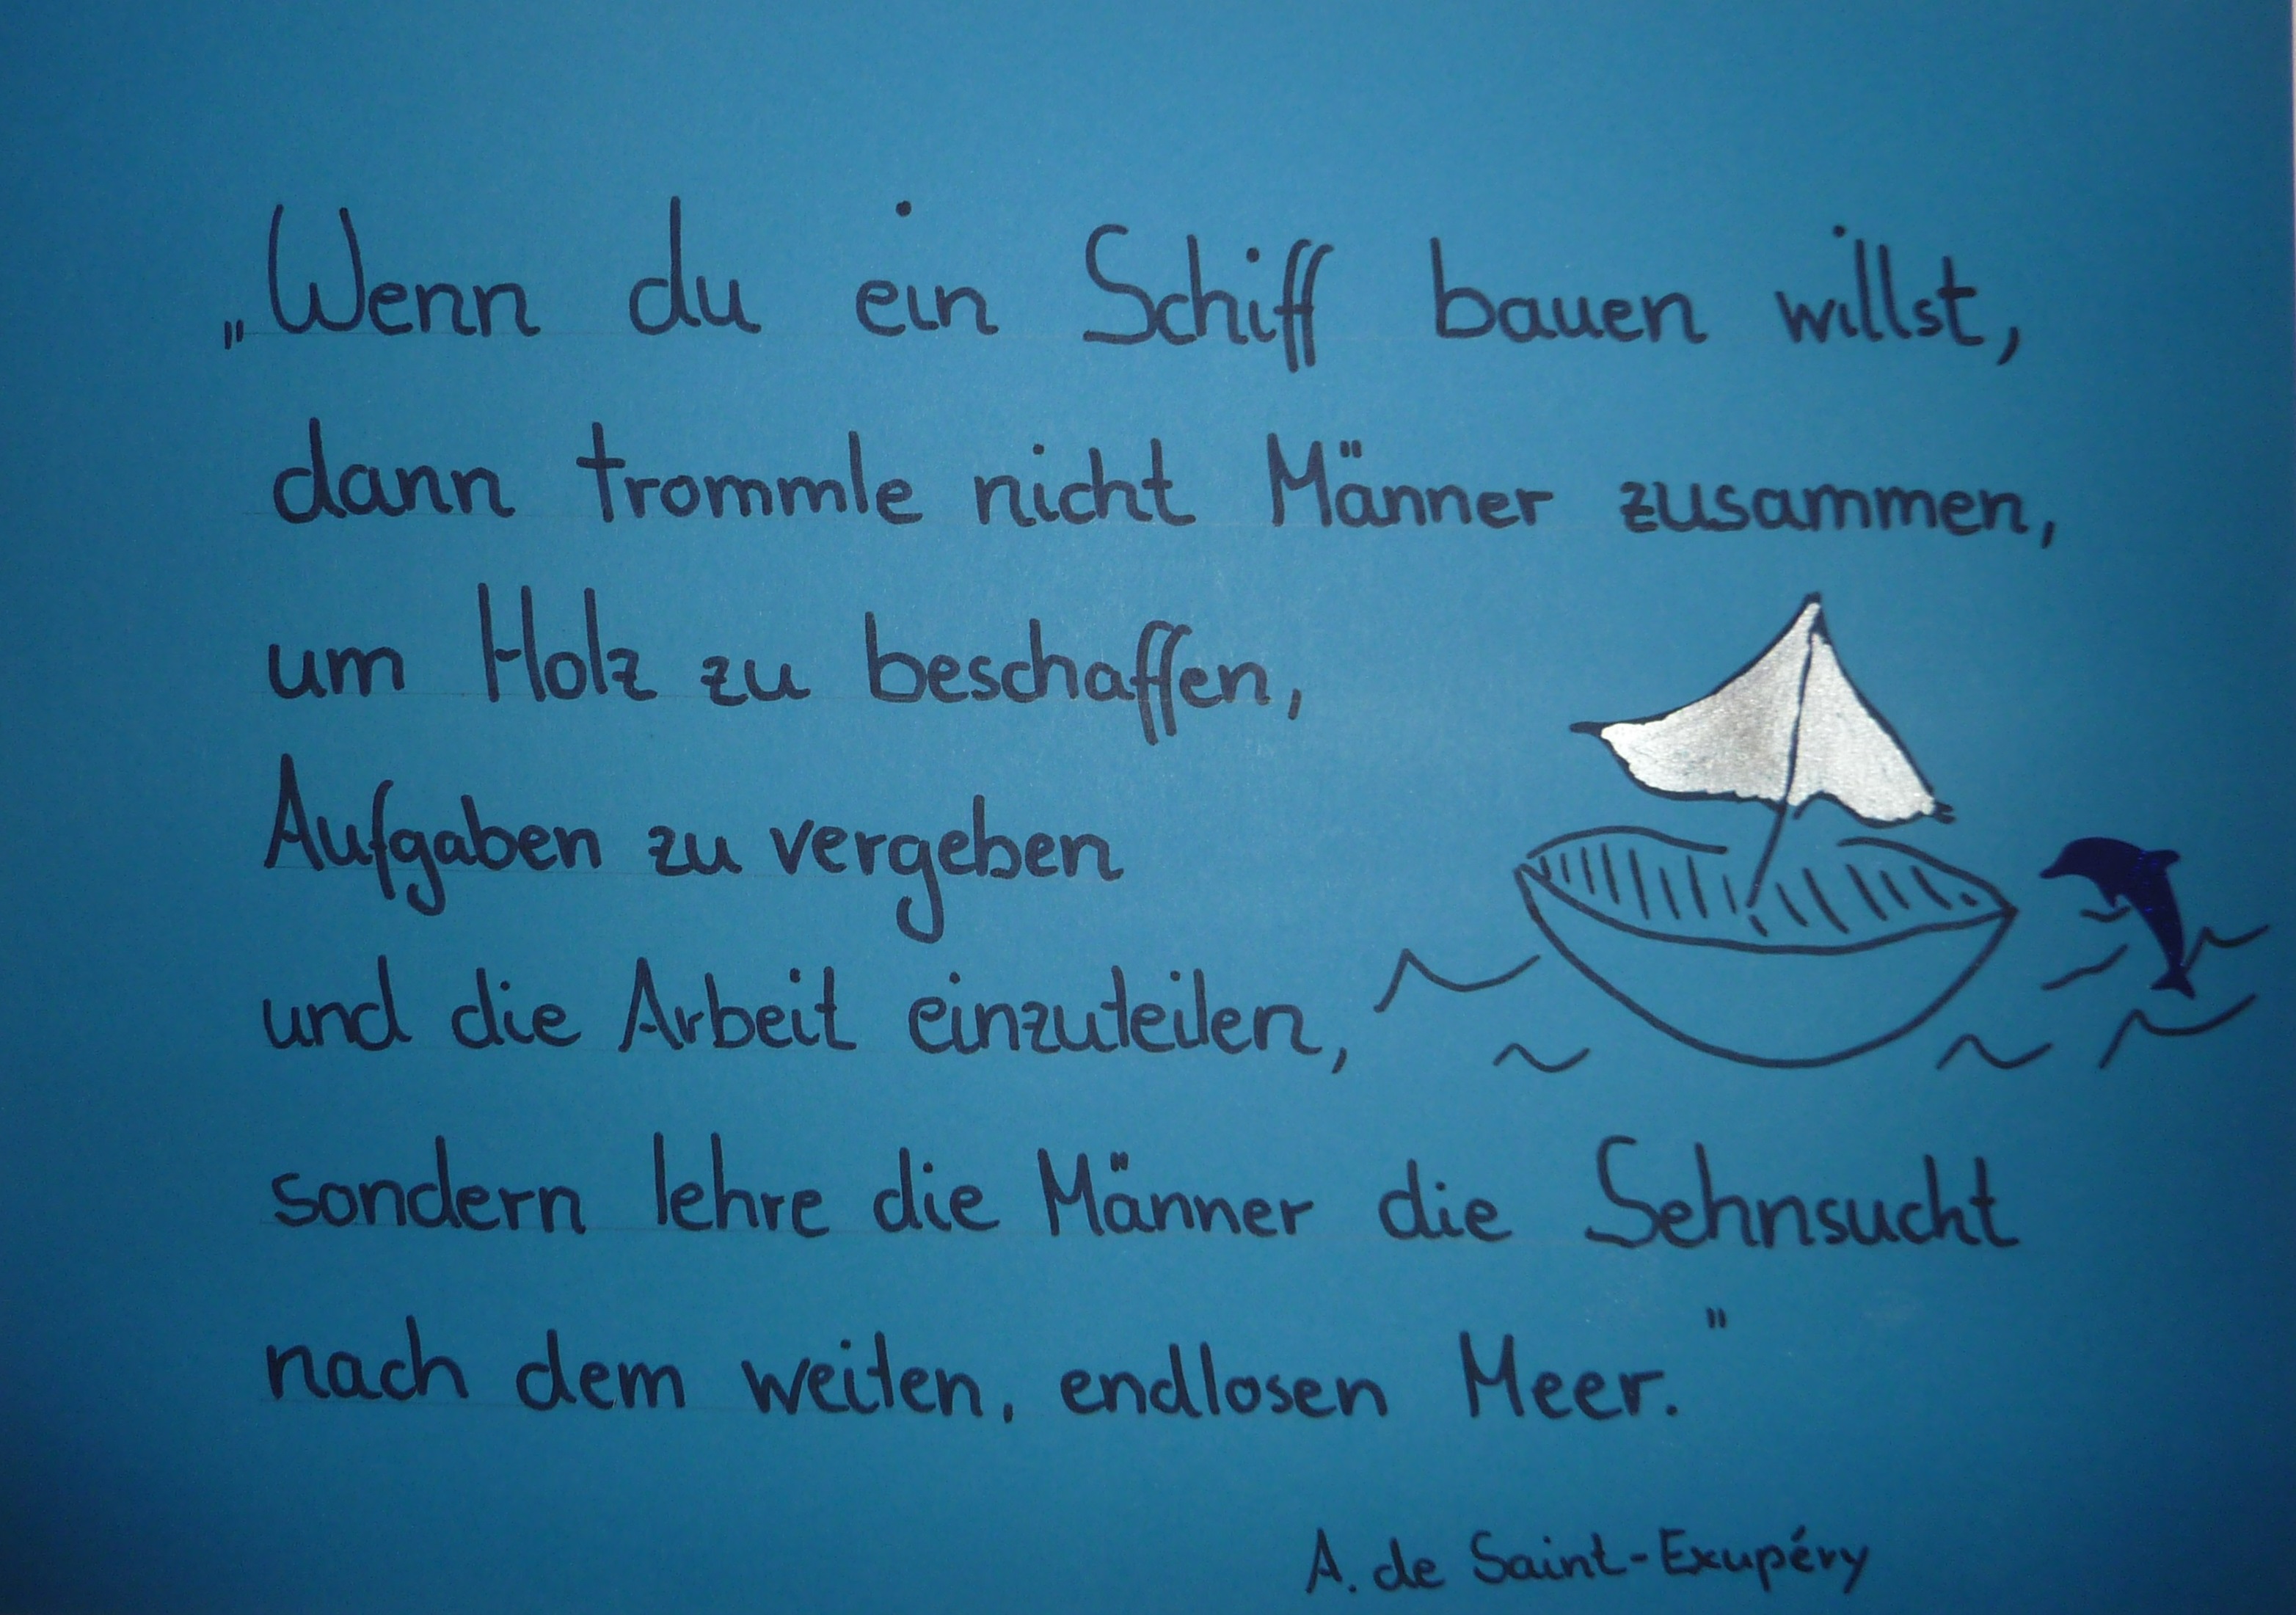 „Wenn du ein Schiff bauen willst,
dann trommle nicht Männer zusammen,
um Holz zu beschaffen,
Aufgaben zu vergeben
und die Arbeit einzuteilen,
sondern lehre die Männer die Sehnsucht
nach dem weiten, endlosen Meer."
A. de Saint-Exupéry